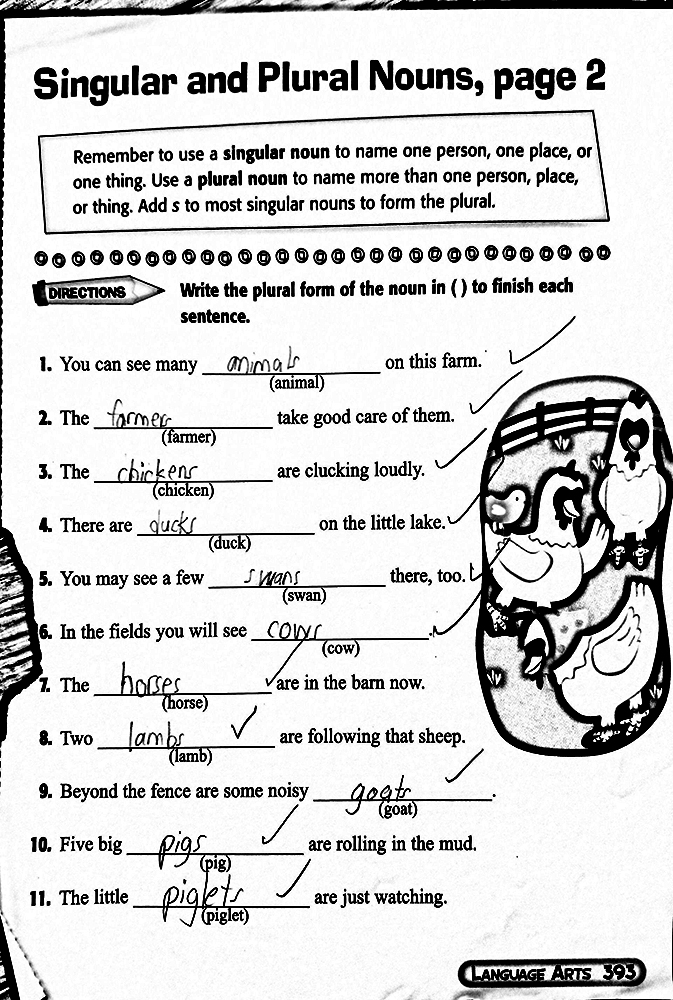 Singular and Plural Nouns, page 2
Remember to use a singular noun to name one person, one place, or
one thing. Use a plural noun to name more than one person, place,
or thing. Add s to most singular nouns to form the plural.
DIRECTIONS Write the plural form of the noun in ( ) to finish each
sentence.
1. You can see many animals on this farm.
(animal)
2. The farmers take good care of them.
(farmer)
3. The chickens are clucking loudly.
(chicken)
4. There are ducks on the little lake.
(duck)
5. You may see a few swans there, too.
(swan)
6. In the fields you will see cows.
(cow)
7. The horses are in the barn now.
(horse)
8. Two lambs are following that sheep.
(lamb)
9. Beyond the fence are some noisy goats.
(goat)
10. Five big pigs are rolling in the mud.
(pig)
11. The little piglets are just watching.
(piglet)
LANGUAGE ARTS 393